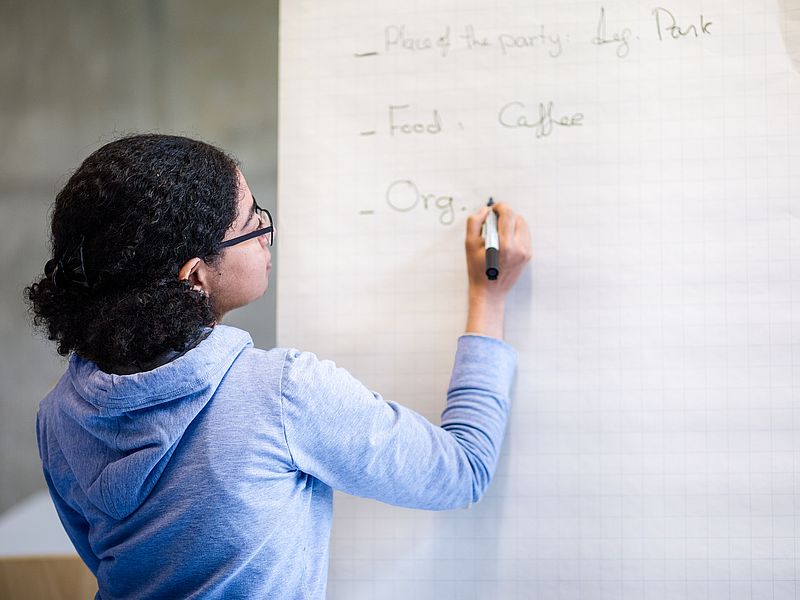 - Place of the party: Park
- Food. Caffee
- Org.